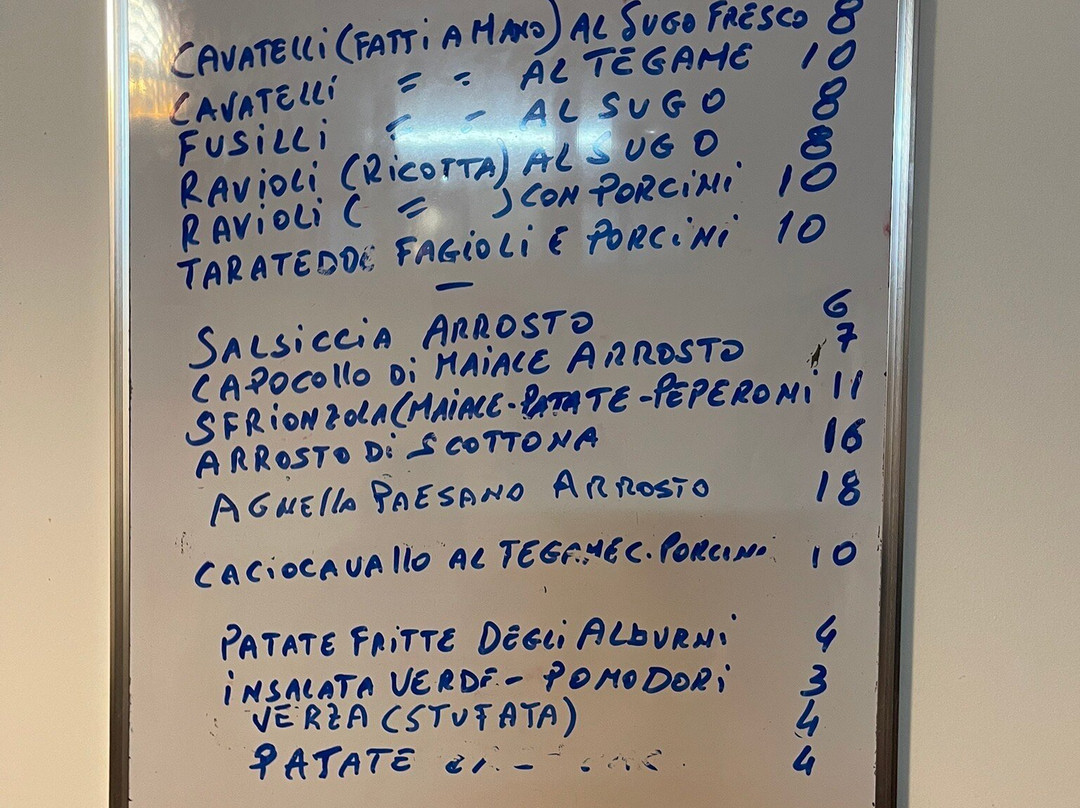 CAVATELLI (FATTI A MANO) AL SUGO FRESCO 8
CAVATELLI " " AL TEGAME 10
FUSILLI " " AL SUGO 8
RAVIOLI (RICOTTA) AL SUGO 8
RAVIOLI ( " ) CON PORCINI 10
TARATEDDE FAGIOLI E PORCINI 10
—
SALSICCIA ARROSTO 6
CAPOCOLLO DI MAIALE ARROSTO 7
SFRIONZOLA (MAIALE-PATATE-PEPERONI 11
ARROSTO DI SCOTTONA 16
AGNELLO PAESANO ARROSTO 18
CACIOCAVALLO AL TEGAME C. PORCINI 10
PATATE FRITTE DEGLI ALBURNI 4
INSALATA VERDE - POMODORI 3
VERZA (STUFATA) 4
PATATE 4